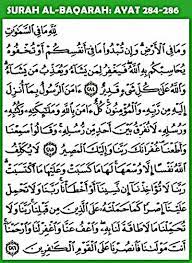 SURAH AL-BAQARAH: AYAT 284-286
لِلَّهِ مَا فِي السَّمَوَاتِ
وَمَا فِي الْأَرْضِ وَإِنْ تُبْدُوا مَا فِي أَنْفُسِكُمْ أَوْ تُخْفُوهُ
يُحَاسِبْكُمْ بِهِ اللَّهُ فَيَغْفِرُ لِمَنْ يَشَاءُ وَيُعَذِّبُ مَنْ يَشَاءُ
وَاللَّهُ عَلَى كُلِّ شَيْءٍ قَدِيرٌ ﴿٢٨٤﴾ آمَنَ الرَّسُولُ بِمَا أُنْزِلَ
إِلَيْهِ مِنْ رَبِّهِ وَالْمُؤْمِنُونَ كُلٌّ آمَنَ بِاللَّهِ وَمَلَئِكَتِهِ وَكُتُبِهِ
وَرُسُلِهِ لَا نُفَرِّقُ بَيْنَ أَحَدٍ مِنْ رُسُلِهِ وَقَالُوا سَمِعْنَا
وَأَطَعْنَا غُفْرَانَكَ رَبَّنَا وَإِلَيْكَ الْمَصِيرُ ﴿٢٨٥﴾ لَا يُكَلِّفُ
اللَّهُ نَفْسًا إِلَّا وُسْعَهَا لَهَا مَا كَسَبَتْ وَعَلَيْهَا مَا اكْتَسَبَتْ
رَبَّنَا لَا تُؤَاخِذْنَا إِنْ نَسِينَا أَوْ أَخْطَأْنَا رَبَّنَا وَلَا تَحْمِلْ عَلَيْنَا
إِصْرًا كَمَا حَمَلْتَهُ عَلَى الَّذِينَ مِنْ قَبْلِنَا رَبَّنَا وَلَا
تُحَمِّلْنَا مَا لَا طَاقَةَ لَنَا بِهِ وَاعْفُ عَنَّا وَاغْفِرْ لَنَا وَارْحَمْنَا
أَنْتَ مَوْلَانَا فَانْصُرْنَا عَلَى الْقَوْمِ الْكَافِرِينَ ﴿٢٨٦﴾